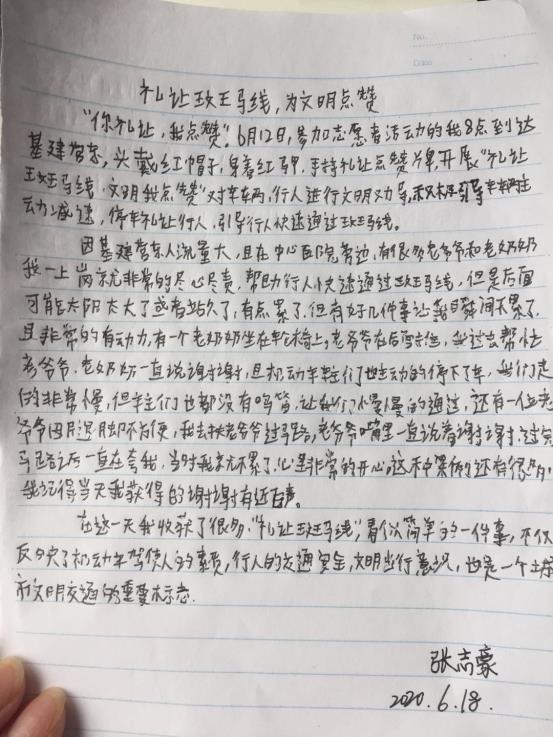 No.
Date
礼让斑马线,为文明点赞
"你礼让,我点赞"。6月12日,参加志愿者活动的我8点到达
基建营东,头戴红帽子,身着红马甲,手持礼让点赞牌,开展"礼让
斑马线,文明我点赞"对车辆,行人进行文明劝导,引导车辆主
动减速,停车礼让行人,引导行人快速通过斑马线。
因基建营东人流量大,且在中心医院旁边,有很多老爷爷和老奶奶
我一上岗就非常的尽心尽责,帮助行人快速通过斑马线,但是后面
可能太阳太大了或者站久了,有点累了.但有好几件事让我瞬间不累了.
且非常的有动力,有一个老奶奶坐在轮椅上,老爷爷在后面推,我过去帮忙
老爷爷.老奶奶一直说谢谢,且机动车车主们也主动的停下了车,我们走
的非常慢,但车主们也都没有鸣笛,让我们慢慢的通过,还有一位老
爷爷因月退月却不方便,我去扶老爷爷过马路,老爷爷嘴里一直说着谢谢,过完
马路后一直在夸我,当时我就不累了.心里非常的开心,这种案例还有很多,
我记得当天我获得的谢谢有近百声.
在这一天我收获了很多."礼让斑马线",看似简单的一件事,不仅
反映了机动车驾驶人的素质,行人的交通安全,文明出行意识,也是一个城
市文明交通的重要标志.
张志豪
2020.6.18.